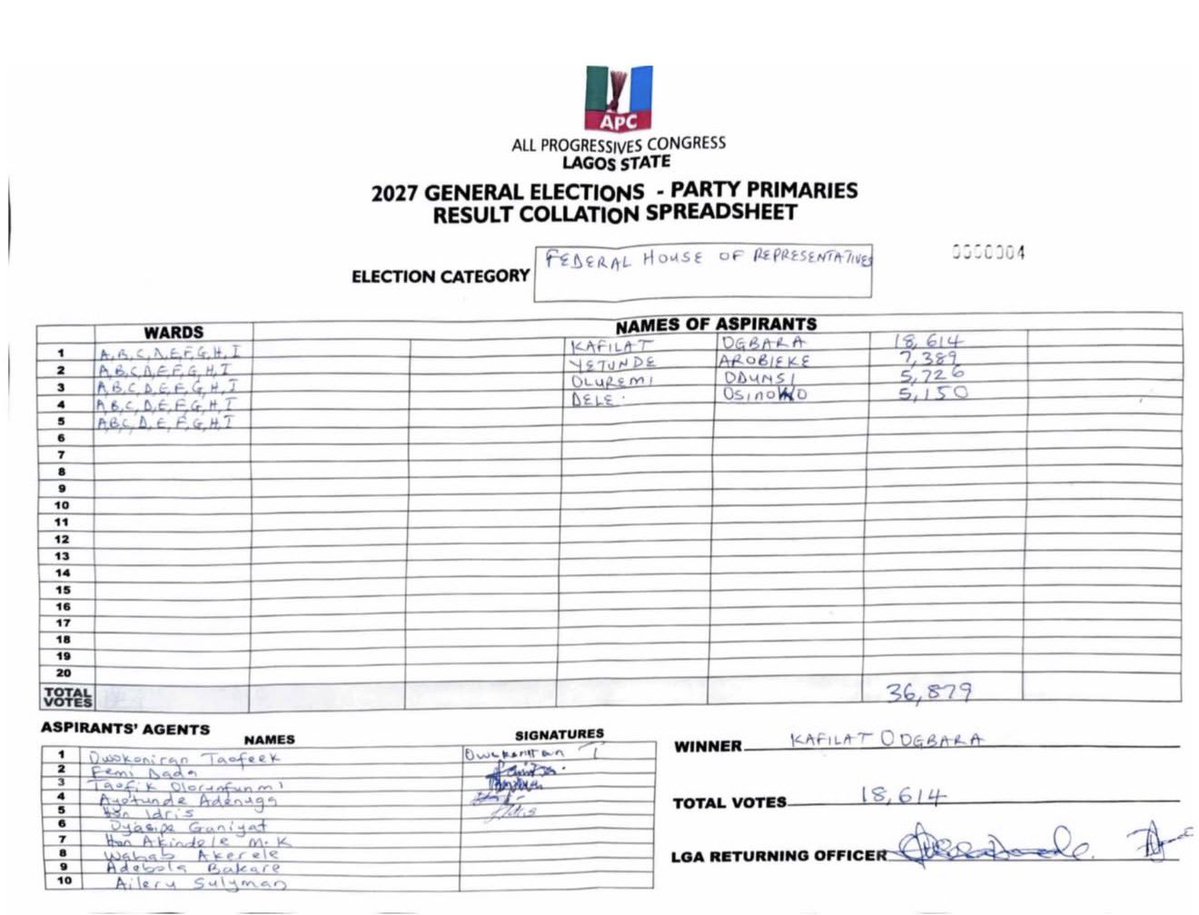 APC
ALL PROGRESSIVES CONGRESS
LAGOS STATE
2027 GENERAL ELECTIONS - PARTY PRIMARIES
RESULT COLLATION SPREADSHEET
ELECTION CATEGORY FEDERAL HOUSE OF REPRESENTATIVES 0000004
WARDS NAMES OF ASPIRANTS
1 A,B,C,D,E,F,G,H,I KAFILAT OGBARA 18,614
2 A,B,C,D,E,F,G,H,I YETUNDE AROBIEKE 7,389
3 A,B,C,D,E,F,G,H,I OLUREMI ODUNSI 5,726
4 A,B,C,D,E,F,G,H,I DELE OSINOWO 5,150
5 A,B,C,D,E,F,G,H,I
6
7
8
9
10
11
12
13
14
15
16
17
18
19
20
TOTAL VOTES 36,879
ASPIRANTS' AGENTS
NAMES SIGNATURES
1 Owokoniran Taofeek Owokoniran T
2 Femi Dada
3 Taofik Olorunfunmi
4 Ayotunde Adenuga
5 Hon Idris Idris
6 Oyasipe Ganiyat
7 Hon Akindele M.K
8 Wahab Akerele
9 Adebola Bakare
10 Aileru Sulyman
WINNER KAFILAT O OGBARA
TOTAL VOTES 18,614
LGA RETURNING OFFICER